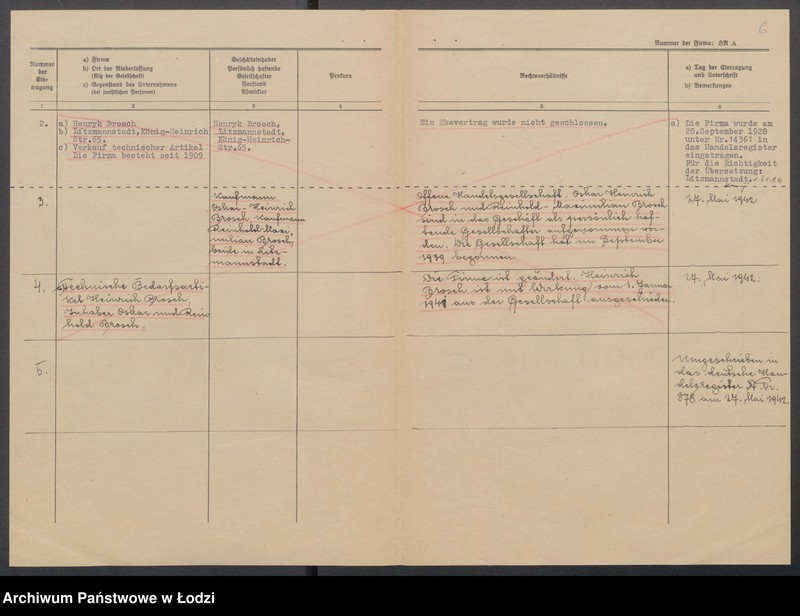 6
Nummer der Firma: HR A
Nummer
der
Ein-
tragung
a) Firma
b) Ort der Niederlassung
(Sitz der Gesellschaft)
c) Gegenstand des Unternehmens
(bei juristischen Personen)
Geschäftsinhaber
Persönlich haftende
Gesellschafter
Vorstand
Abwickler
Prokura
Rechtsverhältnisse
a) Tag der Eintragung
und Unterschrift
b) Bemerkungen
1
2
3
4
5
6
2.
a) Henryk Brosch
b) Litzmannstadt, König-Heinrich
Str.65.
c) Verkauf technischer Artikel
Die Firma besteht seit 1909
Henryk Brosch,
Litzmannstadt,
König-Heinrich-
Str.65.
Ein Ehevertrag wurde nicht geschlossen.
a) Die Firma wurde am
28.September 1928
unter Nr.14361 in
das Handelsregister
eingetragen.
Für die Richtigkeit
der Übersetzung:
Litzmannstadt,
3.
Kaufmann
Oskar-Heinrich
Brosch, Kaufmann
Reinhold-Maxi
milian Brosch,
beide in Litz-
mannstadt.
Offene Handelsgesellschaft. Oskar Heinrich
Brosch und Reinhold-Maximilian Brosch
sind in das Geschäft als persönlich haf-
tende Gesellschafter aufgenommen wor-
den. Die Gesellschaft hat im September
1939 begonnen.
27. Mai 1942
4.
a) Technische Bedarfsarti-
kel Heinrich Brosch,
Inhaber Oskar und Rein
hold Brosch.
Die Firma ist geändert. Heinrich
Brosch ist mit Wirkung vom 1. Januar
1941 aus der Gesellschaft ausgeschieden.
27. Mai 1942.
5.
Umgeschrieben in
das deutsche Han-
delsregister A Nr.
878 am 27. Mai 1942
Archiwum Państwowe w Łodzi